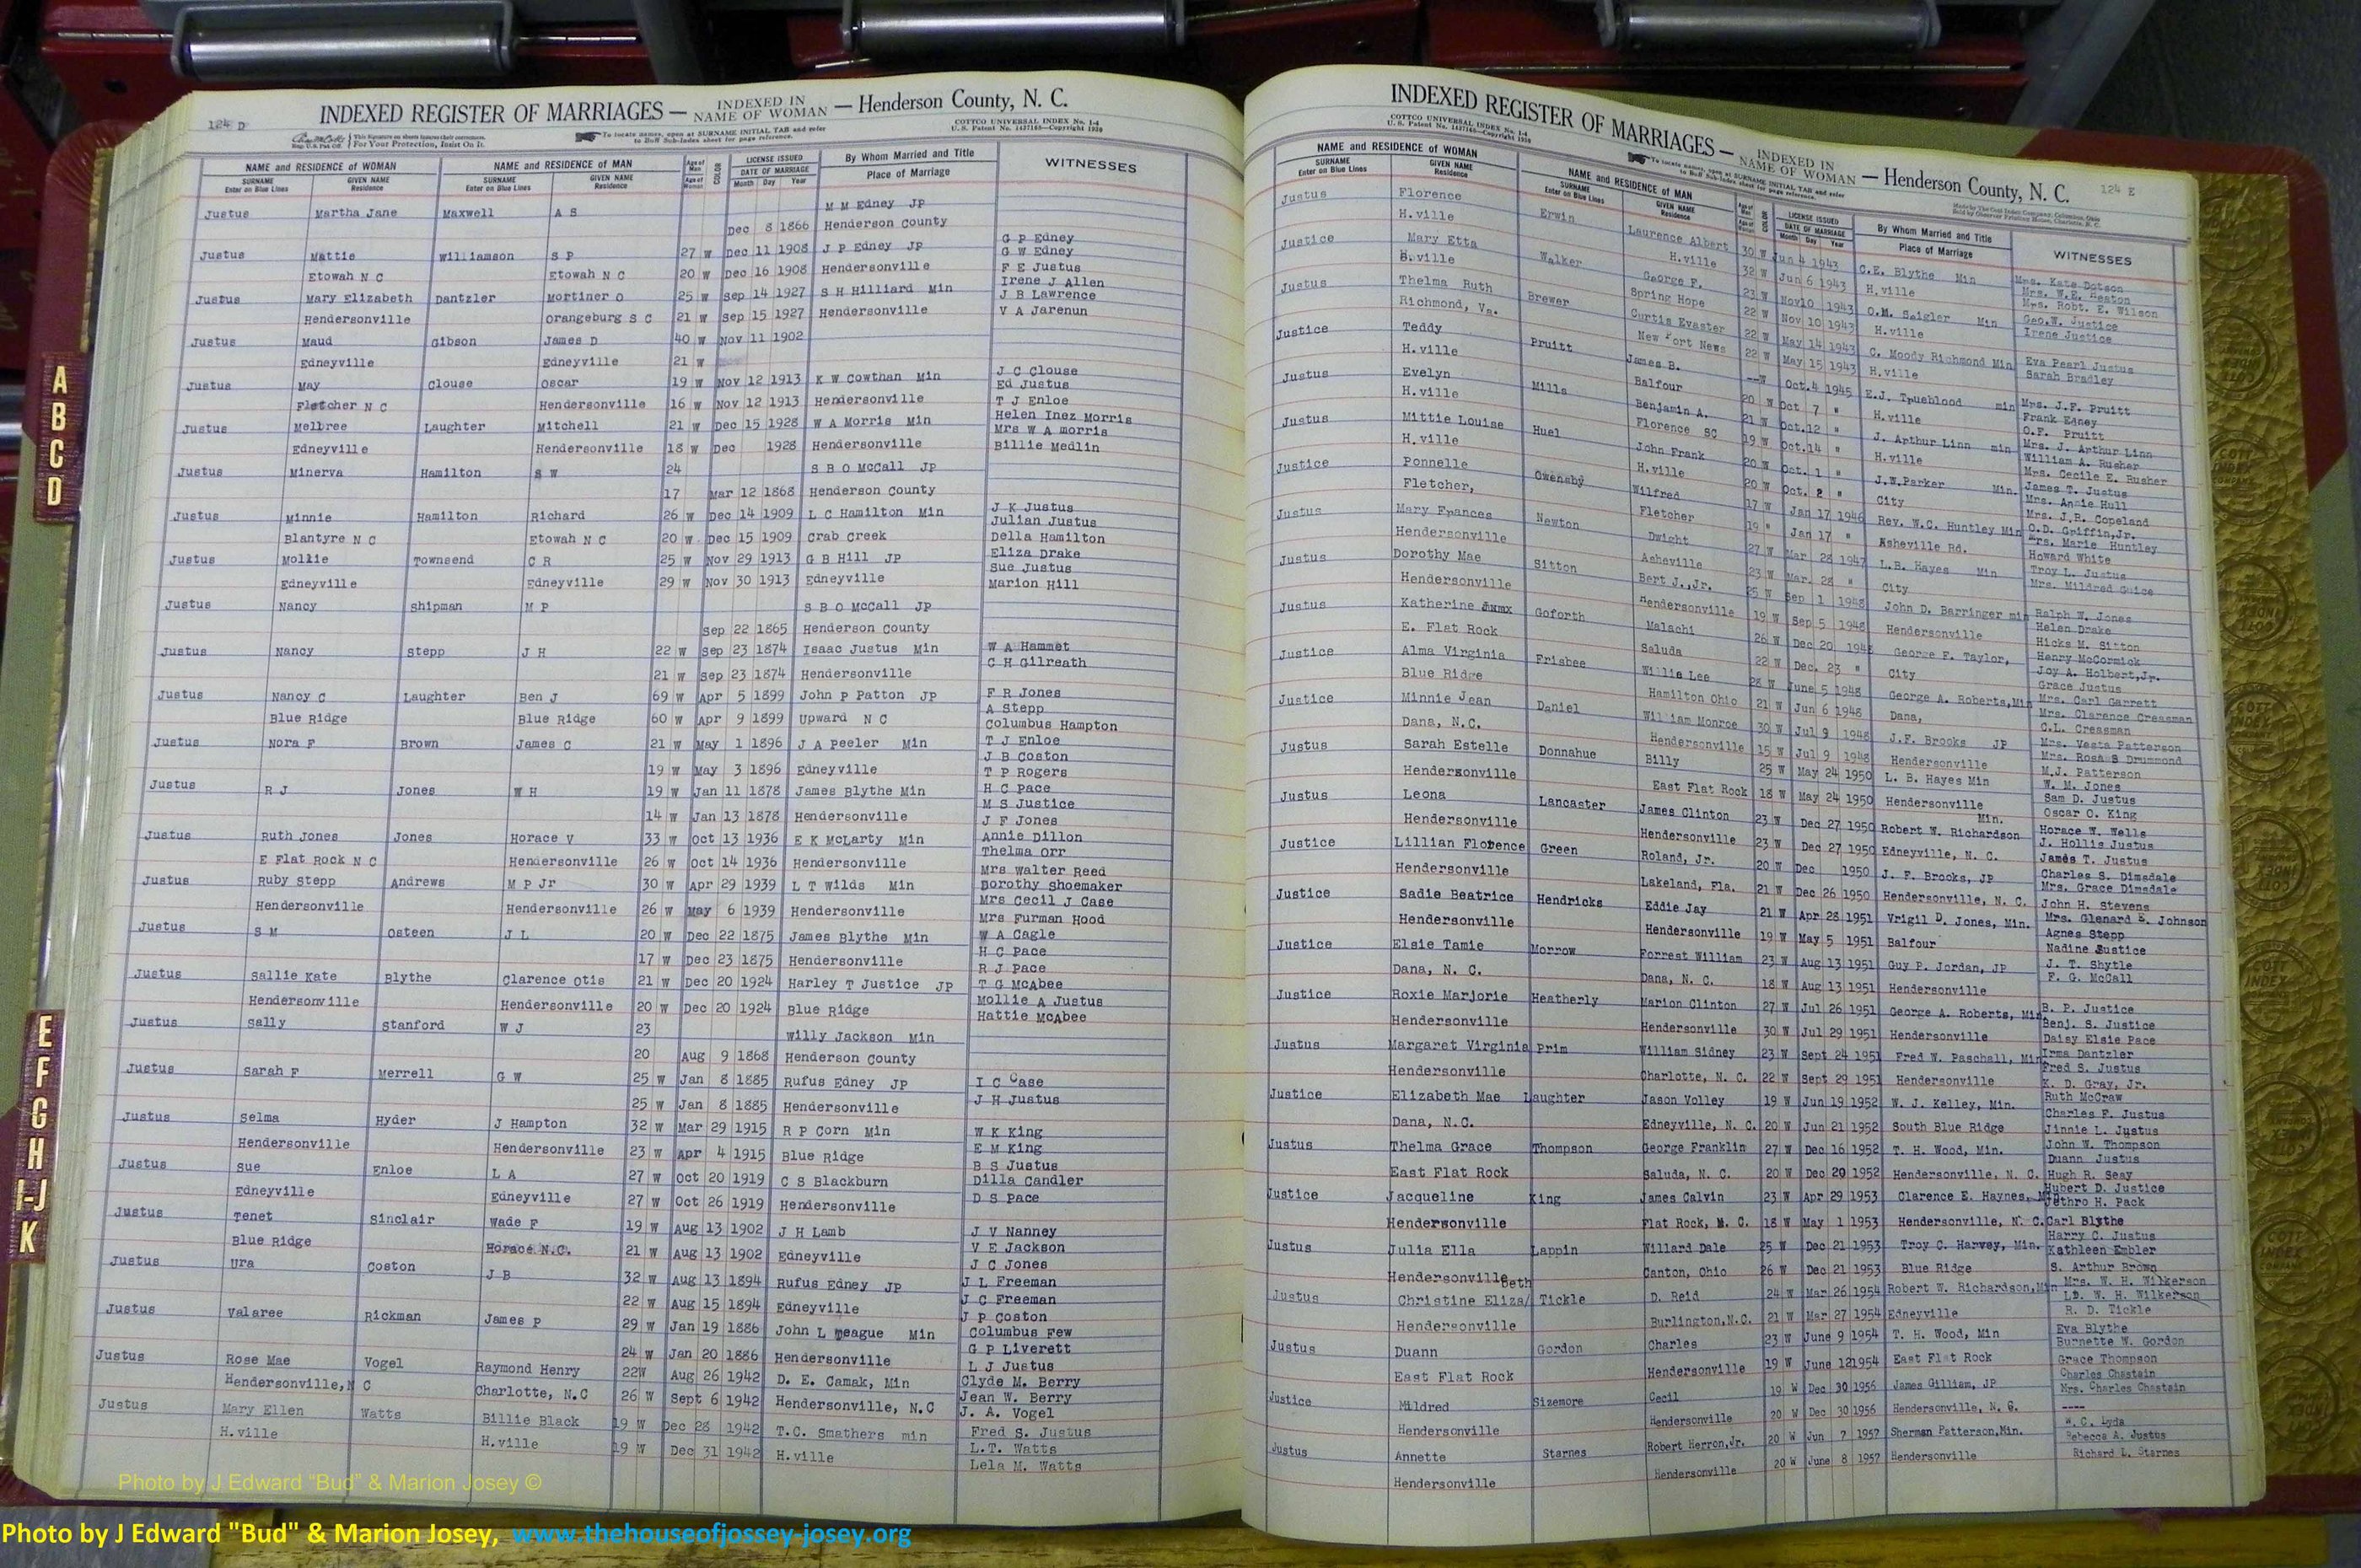 124 D
INDEXED REGISTER OF MARRIAGES — INDEXED IN NAME OF WOMAN — Henderson County, N. C.
This Signature on sheets insures their correctness.
For Your Protection, Insist On It.
To locate names, open at SURNAME INITIAL TAB and refer to Buff Sub-Index sheet for page reference.
COTTCO UNIVERSAL INDEX No. 1-4
U. S. Patent No. 1437165—Copyright 1939
NAME and RESIDENCE OF WOMAN NAME and RESIDENCE OF MAN Age of Man Age of Woman COLOR LICENSE ISSUED DATE OF MARRIAGE By Whom Married and Title Place of Marriage WITNESSES
SURNAME Enter on Blue Lines GIVEN NAME Residence SURNAME Enter on Blue Lines GIVEN NAME Residence Month Day Year
Justus Martha Jane Maxwell A S M M Edney JP
Dec 8 1866 Henderson County
Justus Mattie Williamson S P 27 W Dec 11 1908 J P Edney JP G P Edney
G W Edney
Etowah N C Etowah N C 20 W Dec 16 1908 Hendersonville F E Justus
Justus Mary Elizabeth Dantzler Mortiner O 25 W Sep 14 1927 S H Hilliard Min Irene J Allen
J B Lawrence
Hendersonville Orangeburg S C 21 W Sep 15 1927 Hendersonville V A Jarenun
Justus Maud Gibson James D 40 W Nov 11 1902
Edneyville Edneyville 21 W
Justus May Clouse Oscar 19 W Nov 12 1913 K W Cowthan Min J C Clouse
Ed Justus
Fletcher N C Hendersonville 16 W Nov 12 1913 Hendersonville T J Enloe
Justus Melbree Laughter Mitchell 21 W Dec 15 1928 W A Morris Min Helen Inez Morris
Mrs W A morris
Edneyville Hendersonville 18 W Dec 1928 Hendersonville Billie Medlin
Justus Minerva Hamilton S W 24 S B O McCall JP
17 Mar 12 1868 Henderson County
Justus Minnie Hamilton Richard 26 W Dec 14 1909 L C Hamilton Min J K Justus
Julian Justus
Blantyre N C Etowah N C 20 W Dec 15 1909 Crab Creek Della Hamilton
Justus Mollie Townsend C R 25 W Nov 29 1913 G B Hill JP Eliza Drake
Sue Justus
Edneyville Edneyville 29 W Nov 30 1913 Edneyville Marion Hill
Justus Nancy Shipman M P S B O McCall JP
Sep 22 1865 Henderson County
Justus Nancy Stepp J H 22 W Sep 23 1874 Isaac Justus Min W A Hammet
C H Gilreath
21 W Sep 23 1874 Hendersonville
Justus Nancy C Laughter Ben J 69 W Apr 5 1899 John P Patton JP F R Jones
A Stepp
Blue Ridge Blue Ridge 60 W Apr 9 1899 Upward N C Columbus Hampton
Justus Nora F Brown James C 21 W May 1 1896 J A Peeler Min T J Enloe
J B Coston
19 W May 3 1896 Edneyville T P Rogers
Justus R J Jones W H 19 W Jan 11 1878 James Blythe Min H C Pace
M S Justice
14 W Jan 13 1878 Hendersonville J F Jones
Justus Ruth Jones Jones Horace V 33 W Oct 13 1936 E K McLarty Min Annie Dillon
Thelma Orr
E Flat Rock N C Hendersonville 26 W Oct 14 1936 Hendersonville Mrs Walter Reed
Justus Ruby Stepp Andrews M P Jr 30 W Apr 29 1939 L T Wilds Min Dorothy Shoemaker
Mrs Cecil J Case
Hendersonville Hendersonville 26 W May 6 1939 Hendersonville Mrs Furman Hood
Justus S M Osteen J L 20 W Dec 22 1875 James Blythe Min W A Cagle
H C Pace
17 W Dec 23 1875 Hendersonville R J Pace
Justus Sallie Kate Blythe Clarence Otis 21 W Dec 20 1924 Harley T Justice JP T G McAbee
Mollie A Justus
Hendersonville Hendersonville 20 W Dec 20 1924 Blue Ridge Hattie McAbee
Justus Sally Stanford W J 23 Willy Jackson Min
20 Aug 9 1868 Henderson County
Justus Sarah F Merrell G W 25 W Jan 8 1885 Rufus Edney JP I C Case
J H Justus
25 W Jan 8 1885 Hendersonville
Justus Selma Hyder J Hampton 32 W Mar 29 1915 R P Corn Min W K King
E M King
Hendersonville Hendersonville 23 W Apr 4 1915 Blue Ridge B S Justus
Justus Sue Enloe L A 27 W Oct 20 1919 C S Blackburn Dilla Candler
Edneyville Edneyville 27 W Oct 26 1919 Hendersonville D S Pace
Justus Tenet Sinclair Wade F 19 W Aug 13 1902 J H Lamb J V Nanney
V E Jackson
Blue Ridge Horace N.C. 21 W Aug 13 1902 Edneyville J C Jones
Justus Ura Coston J B 32 W Aug 13 1894 Rufus Edney JP J L Freeman
J C Freeman
22 W Aug 15 1894 Edneyville J P Coston
Justus Valaree Rickman James P 29 W Jan 19 1886 John L Teague Min Columbus Few
G P Liverett
24 W Jan 20 1886 Hendersonville L J Justus
Justus Rose Mae Vogel Raymond Henry 22W Aug 26 1942 D. E. Camak, Min Clyde M. Berry
Jean W. Berry
Hendersonville,N C Charlotte, N.C 26 W Sept 6 1942 Hendersonville, N.C J. A. Vogel
Justus Mary Ellen Watts Billie Black 19 W Dec 28 1942 T.C. Smathers min Fred S. Justus
L.T. Watts
H.ville H.ville 19 W Dec 31 1942 H.ville Lela M. Watts
124 E
INDEXED REGISTER OF MARRIAGES — INDEXED IN NAME OF WOMAN — Henderson County, N. C.
COTTCO UNIVERSAL INDEX No. 1-4
U. S. Patent No. 1437165—Copyright 1939
To locate names, open at SURNAME INITIAL TAB and refer to Buff Sub-Index sheet for page reference.
NAME and RESIDENCE OF WOMAN NAME and RESIDENCE OF MAN Age of Man Age of Woman COLOR LICENSE ISSUED DATE OF MARRIAGE By Whom Married and Title Place of Marriage WITNESSES
SURNAME Enter on Blue Lines GIVEN NAME Residence SURNAME Enter on Blue Lines GIVEN NAME Residence Month Day Year
Justus Florence Erwin Laurence Albert 30 W Jun 4 1943 C.E. Blythe Min Mrs. Kate Dotson
Mrs. W.E. Heaton
H.ville H.ville 32 W Jun 6 1943 H.ville Mrs. Robt. E. Wilson
Justice Mary Etta Walker George F. 23 W Nov10 1943 O.M. Seigler Min Geo.W. Justice
Irene Justice
H.ville Spring Hope 22 W Nov 10 1943 H.ville
Justus Thelma Ruth Brewer Curtis Evaster 22 W May 14 1943 C. Moody Richmond Min Eva Pearl Justus
Sarah Bradley
Richmond, Va. New Port News 22 W May 15 1943 H.ville
Justice Teddy Pruitt James B. --W Oct.4 1945 E.J. Trueblood min Mrs. J.F. Pruitt
Frank Edney
H.ville Balfour 20 W Oct 7 " H.ville O.F. Pruitt
Justus Evelyn Mills Benjamin A. 21 W Oct.12 " J. Arthur Linn min Mrs. J. Arthur Linn
William A. Rusher
H.ville Florence SC 19 W Oct.14 " H.ville Mrs. Cecile E. Rusher
Justus Mittie Louise Huel John Frank 20 W Oct. 1 " J.W.Parker Min. James T. Justus
Mrs. Annie Hull
H.ville H.ville 20 W Oct. 2 " City Mrs. J.B. Copeland
Justice Ponnelle Owensby Wilfred 17 W Jan 17 1946 Rev. W.C. Huntley Min O.D. Griffin,Jr.
Mrs. Marie Huntley
Fletcher, Fletcher 19 " Jan 17 " Asheville Rd. Howard White
Justus Mary Frances Newton Dwight 27 W Mar 28 1947 L.B. Hayes Min Troy L. Justus
Mrs. Mildred Guice
Hendersonville Asheville 23 W Mar. 28 " City
Justus Dorothy Mae Sitton Bert J.,Jr. 25 W Sep 1 1948 John D. Barringer min Ralph W. Jones
Helen Drake
Hendersonville Hendersonville 19 W Sep 5 1948 Hendersonville Hicks M. Sitton
Justus Katherine Goforth Malachi 26 W Dec 20 1948 George F. Taylor, Henry McCormick
Joy A. Holbert,Jr.
E. Flat Rock Saluda 22 W Dec. 23 " City Grace Justus
Justice Alma Virginia Frisbee Willie Lee 28 W June 5 1948 George A. Roberts,Min Mrs. Carl Garrett
Mrs. Clarence Creasman
Blue Ridge Hamilton Ohio 21 W Jun 6 1948 Dana, C.L. Creasman
Justice Minnie Jean Daniel William Monroe 30 W Jul 9 1948 J.F. Brooks JP Mrs. Vesta Patterson
Mrs. Rosa S Drummond
Dana, N.C. Hendersonville 15 W Jul 9 1948 Hendersonville M.J. Patterson
Justus Sarah Estelle Donnahue Billy 25 W May 24 1950 L. B. Hayes Min W. M. Jones
Sam D. Justus
Hendersonville East Flat Rock 18 W May 24 1950 Hendersonville Oscar O. King
Justus Leona Lancaster James Clinton 23 W Dec 27 1950 Robert W. Richardson Min. Horace W. Wells
J. Hollis Justus
Hendersonville Hendersonville 23 W Dec 27 1950 Edneyville, N. C. James T. Justus
Justice Lillian Florence Green Roland, Jr. 20 W Dec 1950 J. F. Brooks, JP Charles S. Dimsdale
Mrs. Grace Dimsdale
Hendersonville Lakeland, Fla. 21 W Dec 26 1950 Hendersonville, N. C. John H. Stevens
Justice Sadie Beatrice Hendricks Eddie Jay 21 W Apr 28 1951 Vrigil D. Jones, Min. Mrs. Glenard E. Johnson
Agnes Stepp
Hendersonville Hendersonville 19 W May 5 1951 Balfour Nadine Justice
Justice Elsie Tamie Morrow Forrest William 23 W Aug 13 1951 Guy P. Jordan, JP J. T. Shytle
F. G. McCall
Dana, N. C. Dana, N. C. 18 W Aug 13 1951 Hendersonville
Justice Roxie Marjorie Heatherly Marion Clinton 27 W Jul 26 1951 George A. Roberts, Min B. P. Justice
Benj. S. Justice
Hendersonville Hendersonville 30 W Jul 29 1951 Hendersonville Daisy Elsie Pace
Justus Margaret Virginia Prim William Sidney 23 W Sept 24 1951 Fred W. Paschall, Min Irma Dantzler
Fred S. Justus
Hendersonville Charlotte, N. C. 22 W Sept 29 1951 Hendersonville K. D. Gray, Jr.
Justice Elizabeth Mae Laughter Jason Volley 19 W Jun 19 1952 W. J. Kelley, Min. Ruth McCraw
Charles F. Justus
Dana, N.C. Edneyville, N. C. 20 W Jun 21 1952 South Blue Ridge Jinnie L. Justus
Justus Thelma Grace Thompson George Franklin 27 W Dec 16 1952 T. H. Wood, Min. John W. Thompson
Duann Justus
East Flat Rock Saluda, N. C. 20 W Dec 20 1952 Hendersonville, N. C. Hugh R. Seay
Justice Jacqueline King James Calvin 23 W Apr 29 1953 Clarence E. Haynes, Min Hubert D. Justice
Jethro H. Pack
Hendersonville Flat Rock, N. C. 18 W May 1 1953 Hendersonville, N. C. Carl Blythe
Justus Julia Ella Lappin Willard Dale 25 W Dec 21 1953 Troy C. Harvey, Min. Harry C. Justus
Kathleen Embler
Hendersonville Canton, Ohio 26 W Dec 21 1953 Blue Ridge S. Arthur Brown
Justus Christine Eliza/beth Tickle D. Reid 24 W Mar 26 1954 Robert W. Richardson,Min Mrs. W. H. Wilkerson
LD. W. H. Wilkerson
Hendersonville Burlington,N.C. 21 W Mar 27 1954 Edneyville R. D. Tickle
Justus Duann Gordon Charles 23 W June 9 1954 T. H. Wood, Min Eva Blythe
Burnette W. Gordon
East Flat Rock Hendersonville 19 W June 12 1954 East Flat Rock Grace Thompson
Justice Mildred Sizemore Cecil 19 W Dec 30 1956 James Gilliam, JP Charles Chastain
Mrs. Charles Chastain
Hendersonville Hendersonville 20 W Dec 30 1956 Hendersonville, N. C. ----
Justus Annette Starnes Robert Herron,Jr. 20 W Jun 7 1957 Sherman Patterson,Min. W. C. Lyda
Rebecca A. Justus
Hendersonville Hendersonville 20 W June 8 1957 Hendersonville Richard L. Starnes
A
B
C
D
E
F
G
H
I-J
K
COTT INDEX COMPANY
Photo by J Edward "Bud" & Marion Josey ©
Photo by J Edward "Bud" & Marion Josey, www.thehouseofjossey-josey.org